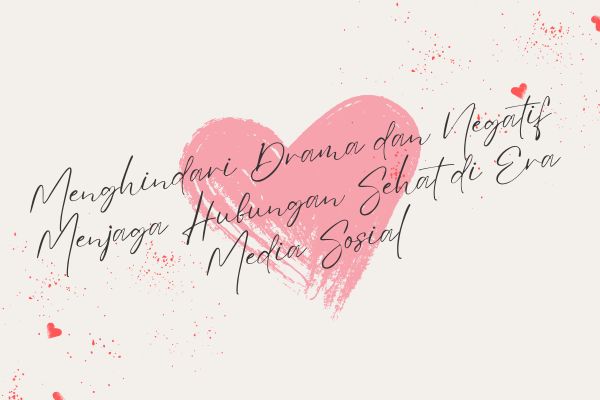 Menghindari Drama dan Negatif
Menjaga Hubungan Sehat di Era
Media Sosial